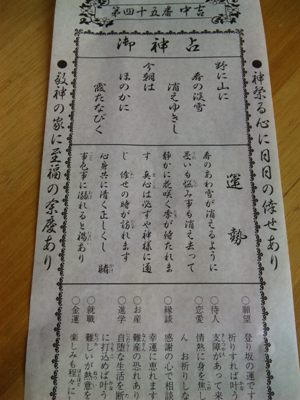 第四十五番 中吉
御神占
●神栄る心に日日の倖せあり
●敬神の家に至福の余慶あり
野に山に
春の淡雪
消えゆきし
今朝は
ほのかに
霞たなびく
運勢
春のあわ雪が消えるように
憂いも悩み事も消え去って
静かに花咲く季が待たれま
す 真心は必ずや神様に通
じ 倖せの時が訪れます
心身共に清く正しくし 賭
事色事に溺れると禍あり
○願望 登り坂の運です
祈りすれば叶う
○待人 支障があって来
○恋愛 情熱に身を焦し
ん お祈りしな
○縁談 感謝の心で相談
幸運に恵まれます
○お産 難産の恐れあり
○進学 自堕な生活を断
に打込めば叶う
○就職 難しいが熱意を
○金運 楽しみも程々に